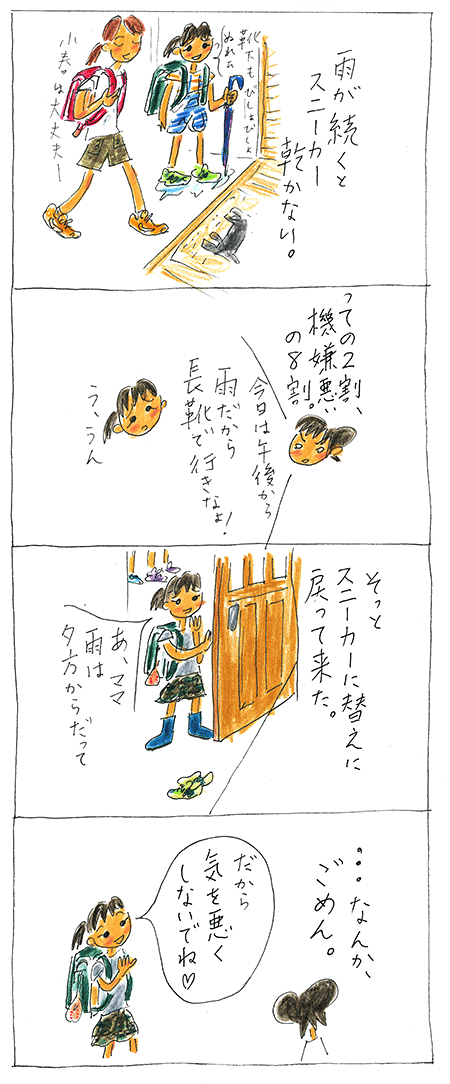 雨が続くと
スニーカー
乾かない。
靴下もびしょびしょ
ぬれたっ
小春。は大丈夫ー
っての2割、
機嫌悪い
の8割。
今日は午後から
雨だから
長靴で行きなよ！
う、うん
そっと
スニーカーに替えに
戻って来た。
あ、ママ
雨は
夕方からだって
…なんか、
ごめん。
だから
気を悪く
しないでね♡